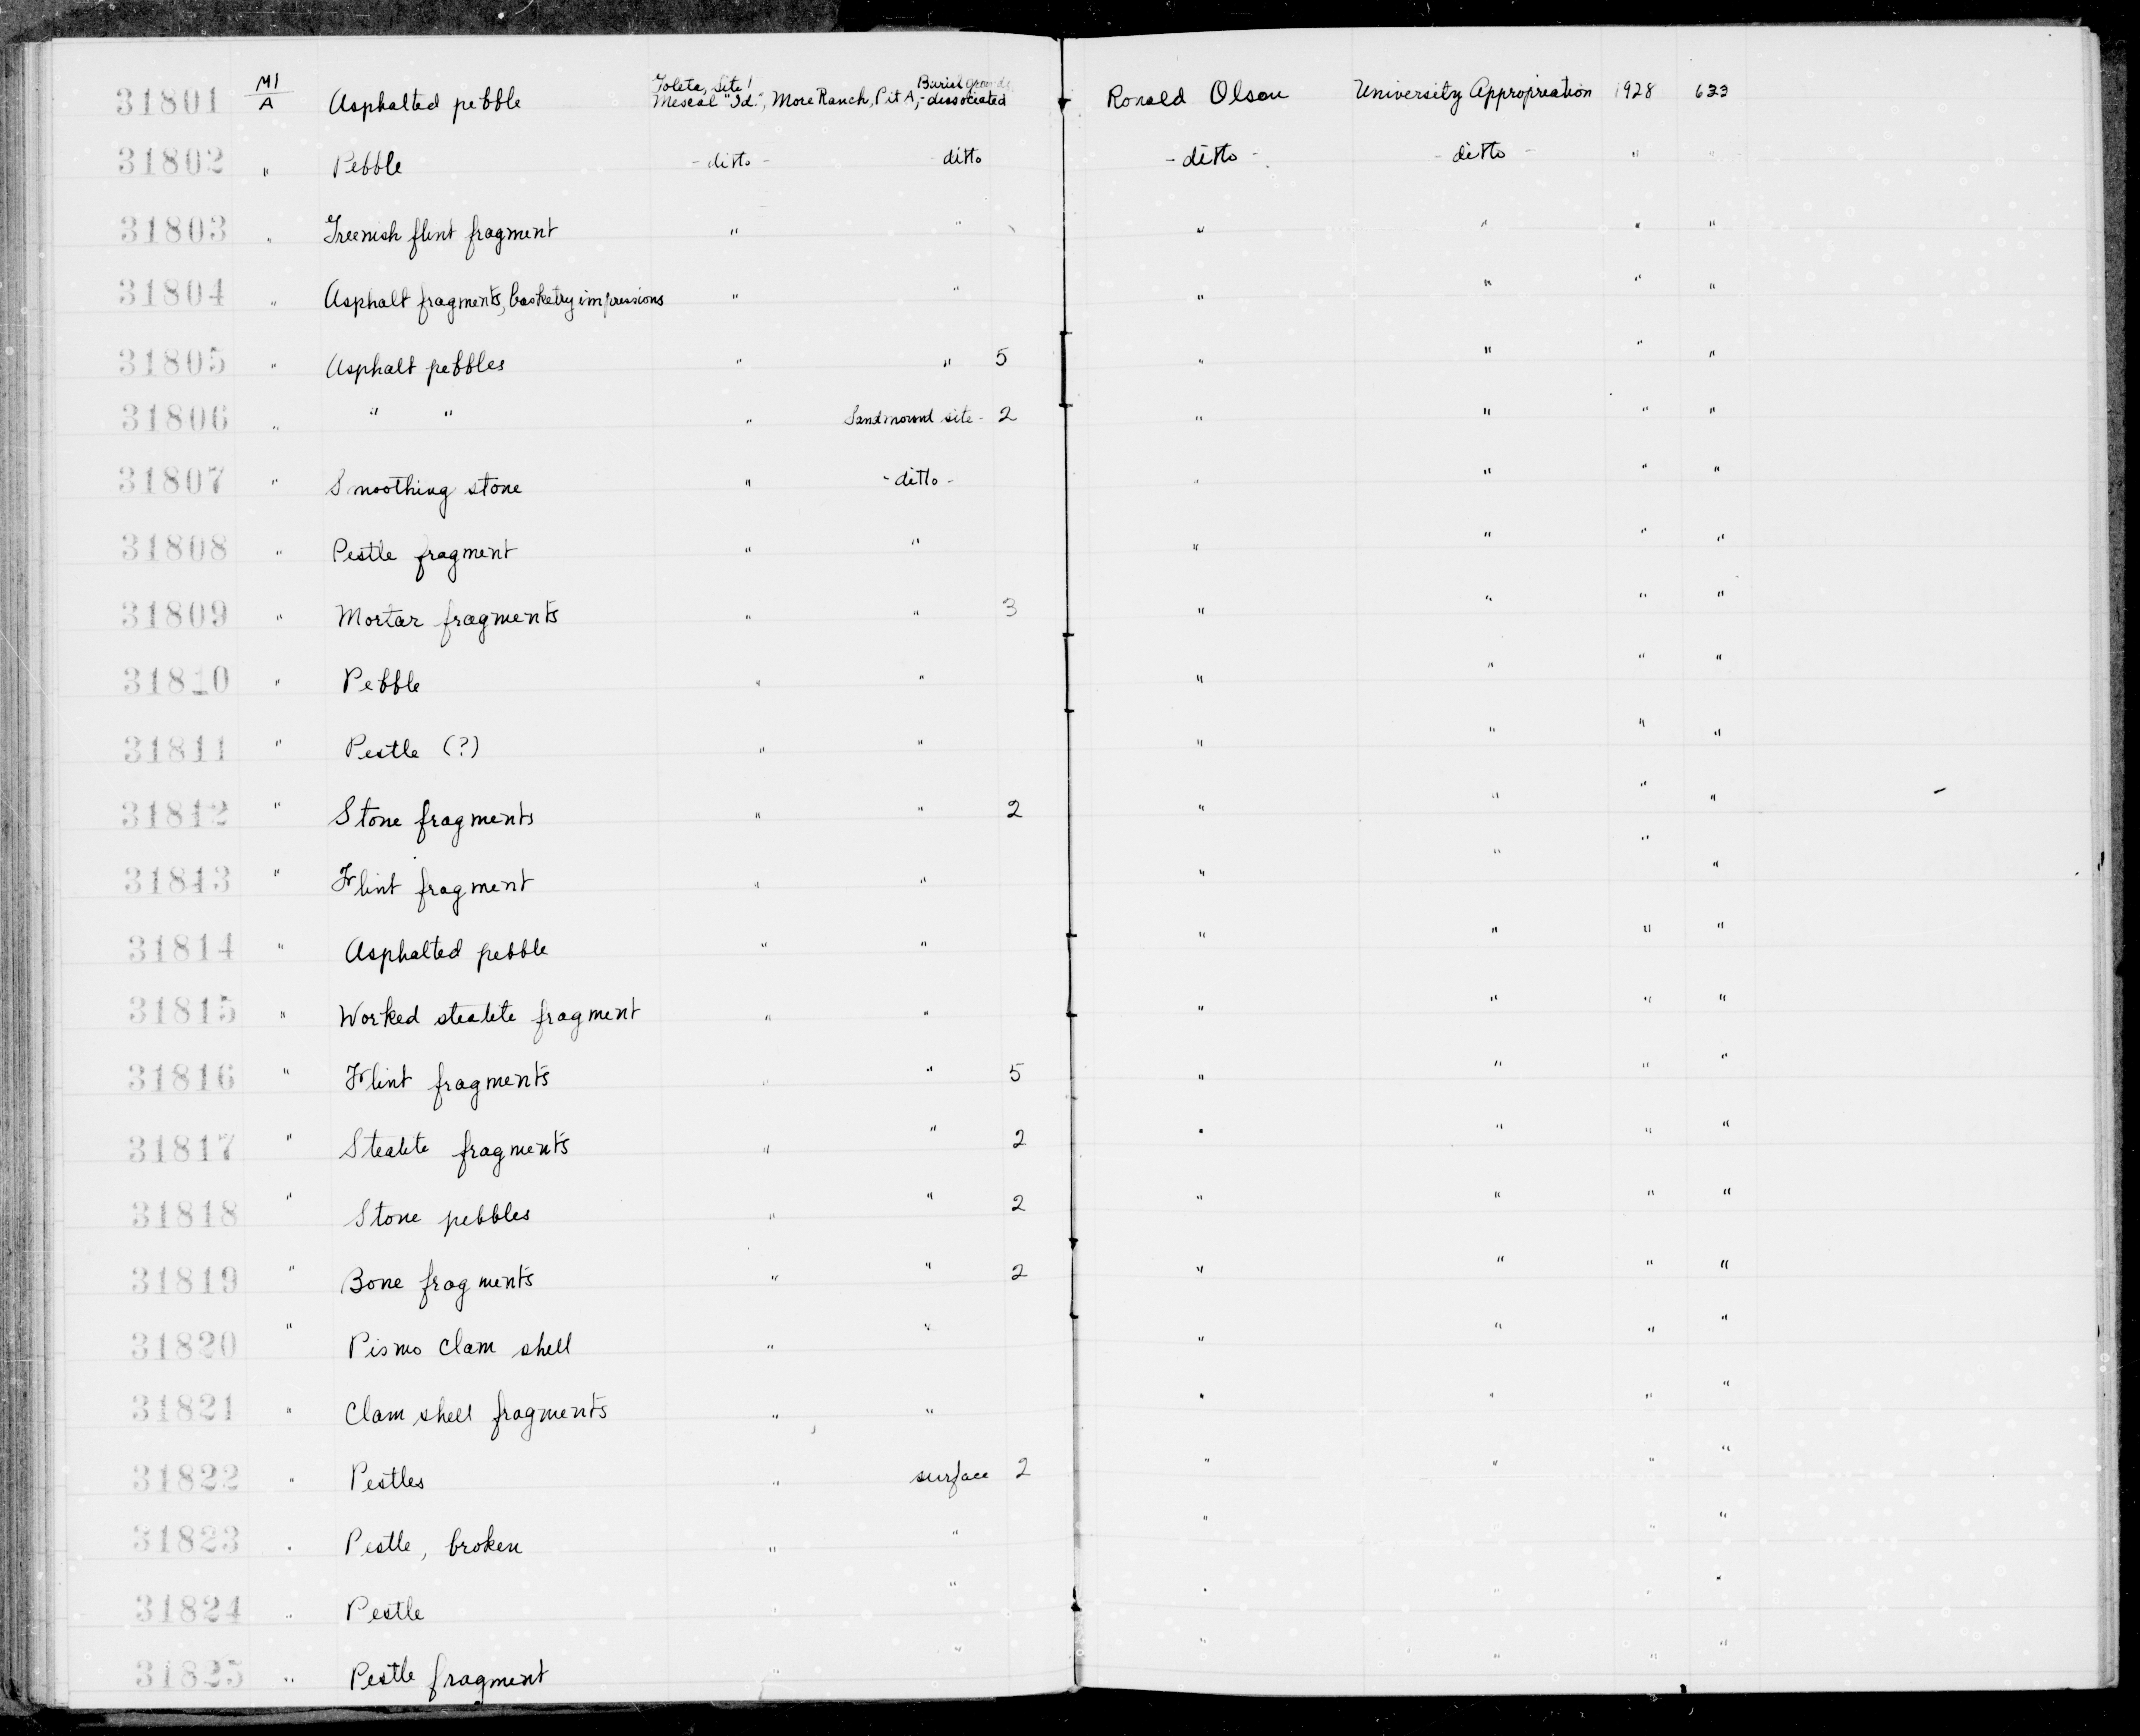 31801 M1/A Asphalted pebble Goleta, Site 1 Mescal "Id.", More Ranch, Pit A, Burial grounds - dissociated Ronald Olson University Appropriation 1928 633
31802 " Pebble - ditto - ditto - ditto - - ditto - " "
31803 " Greenish flint fragment " " " " " "
31804 " Asphalt fragments, basketry impressions " " " " " "
31805 " Asphalt pebbles " " 5 " " " "
31806 " " " " Sandmound site - 2 " " " "
31807 " Smoothing stone " - ditto - " " " "
31808 " Pestle fragment " " " " " "
31809 " Mortar fragments " " 3 " " " "
31810 " Pebble " " " " " "
31811 " Pestle (?) " " " " " "
31812 " Stone fragments " " 2 " " " "
31813 " Flint fragment " " " " " "
31814 " Asphalted pebble " " " " " "
31815 " Worked steatite fragment " " " " " "
31816 " Flint fragments " " 5 " " " "
31817 " Steatite fragments " " 2 " " " "
31818 " Stone pebbles " " 2 " " " "
31819 " Bone fragments " " 2 " " " "
31820 " Pismo clam shell " " " " " "
31821 " Clam shell fragments " " " " " "
31822 " Pestles " surface 2 " " " "
31823 " Pestle, broken " " " " " "
31824 " Pestle " " " " " "
31825 " Pestle fragment " " " " " "